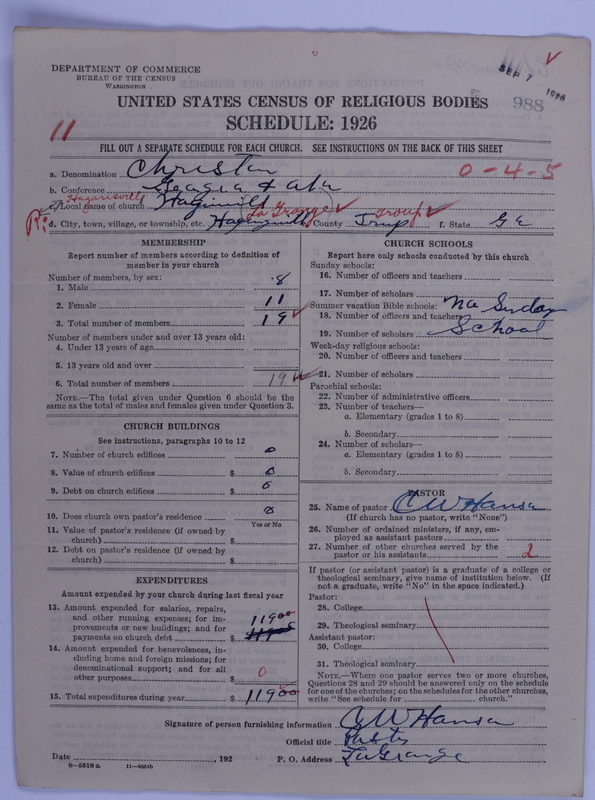 DEPARTMENT OF COMMERCE
BUREAU OF THE CENSUS
WASHINGTON
SEP 7
988
UNITED STATES CENSUS OF RELIGIOUS BODIES
SCHEDULE: 1926
11
FILL OUT A SEPARATE SCHEDULE FOR EACH CHURCH. SEE INSTRUCTIONS ON THE BACK OF THIS SHEET
a. Denomination Christian 0-4-5
b. Conference Georgia & Ala
c. Local name of church
d. City, town, village, or township, etc. La Grange e. County Troup f. State Ga
MEMBERSHIP
Report number of members according to definition of
member in your church
Number of members, by sex:
1. Male 8
2. Female 11
3. Total number of members 19
Number of members under and over 13 years old:
4. Under 13 years of age
5. 13 years old and over
6. Total number of members 19
NOTE.—The total given under Question 6 should be the
same as the total of males and females given under Question 3.
CHURCH BUILDINGS
See instructions, paragraphs 10 to 12
7. Number of church edifices 0
8. Value of church edifices $ 0
9. Debt on church edifices $ 0
10. Does church own pastor's residence 0
Yes or No
11. Value of pastor's residence (if owned by
church) $
12. Debt on pastor's residence (if owned by
church) $
EXPENDITURES
Amount expended by your church during last fiscal year
13. Amount expended for salaries, repairs,
and other running expenses; for im-
provements or new buildings; and for
payments on church debt $ 119 00
14. Amount expended for benevolences, in-
cluding home and foreign missions; for
denominational support; and for all
other purposes $ 0
15. Total expenditures during year $ 119 00
CHURCH SCHOOLS
Report here only schools conducted by this church
Sunday schools:
16. Number of officers and teachers
17. Number of scholars
Summer vacation Bible schools: No Sunday
18. Number of officers and teachers
19. Number of scholars School
Week-day religious schools:
20. Number of officers and teachers
21. Number of scholars
Parochial schools:
22. Number of administrative officers
23. Number of teachers—
a. Elementary (grades 1 to 8)
b. Secondary
24. Number of scholars—
a. Elementary (grades 1 to 8)
b. Secondary
PASTOR
25. Name of pastor C W Hanson
(If church has no pastor, write "None")
26. Number of ordained ministers, if any, em-
ployed as assistant pastors
27. Number of other churches served by the
pastor or his assistants 2
If pastor (or assistant pastor) is a graduate of a college or
theological seminary, give name of institution below. (If
not a graduate, write "No" in the space indicated.)
Pastor:
28. College
29. Theological seminary
Assistant pastor:
30. College
31. Theological seminary
NOTE.—Where one pastor serves two or more churches,
Questions 28 and 29 should be answered only on the schedule
for one of the churches; on the schedules for the other churches,
write "See schedule for church."
Signature of person furnishing information C W Hanson
Official title Pastor
Date , 192 P. O. Address LaGrange
8—5518 a